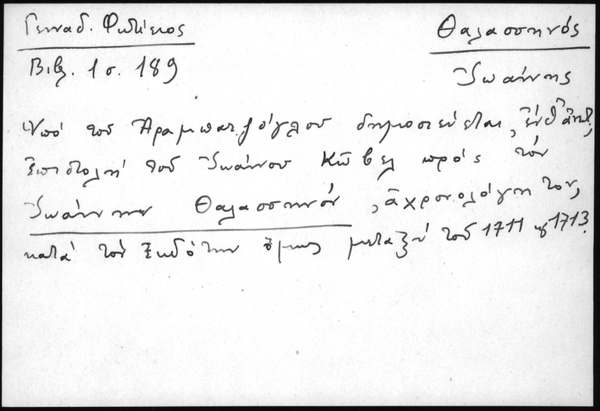 Γενναδ. Φωτίειος
Βιβλ. 1 σ. 189
Θαλασσηνός
Ἰωάννης
Ὑπό τοῦ Ἀραμπατζόγλου δημοσιεύεται, ἔνθ' ἀνωτ.,
Ἐπιστολή τοῦ Ἰωάννου Κῶβελ πρός τόν
Ἰωάννην Θαλασσηνόν, ἀχρονολόγητος,
κατά τόν ἐκδότην ὅμως μεταξύ τοῦ 1711 καί 1713.